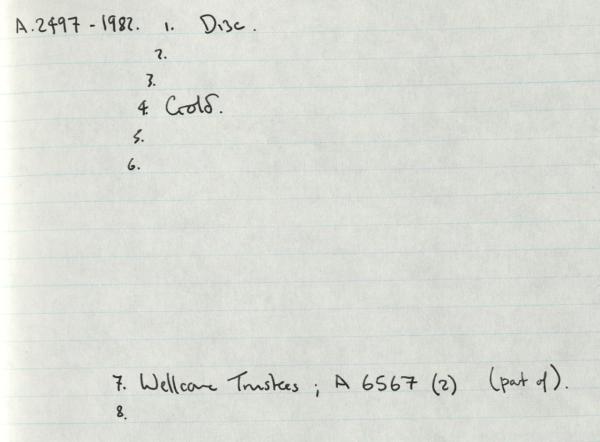 A.2497 - 1982. 1. Disc.
2.
3.
4. Gold.
5.
6.
7. Wellcome Trustees; A 6567 (2) (part of).
8.